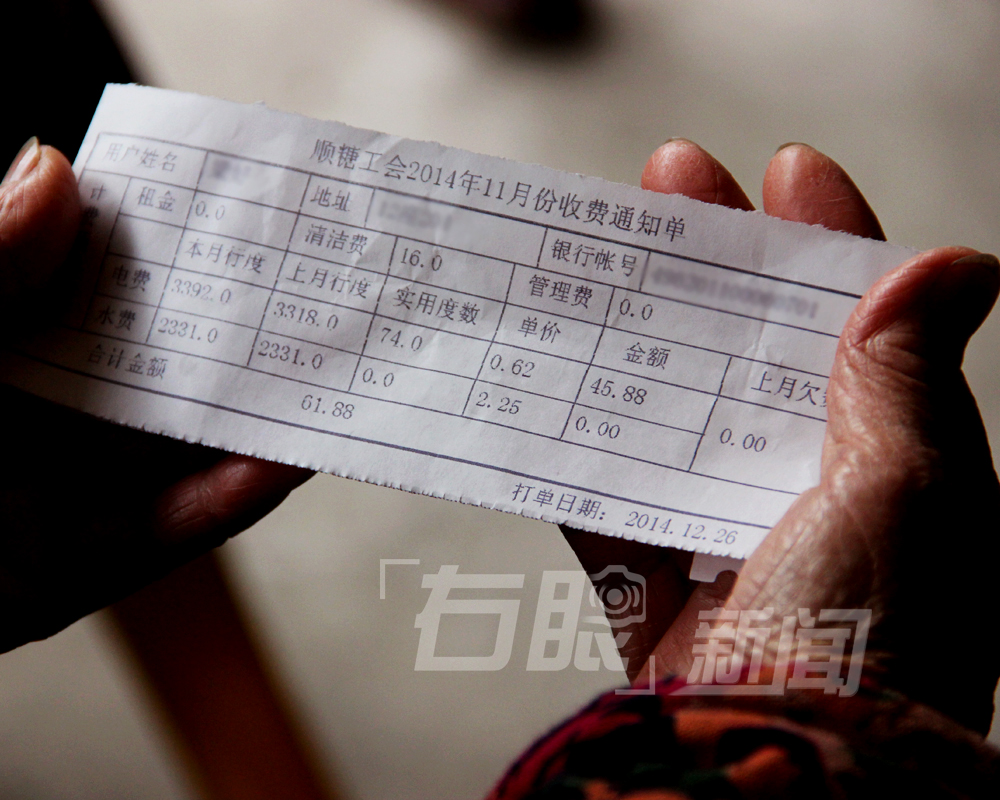 顺糖工会2014年11月份收费通知单
用户姓名 地址 银行帐号
计费 租金 0.0 清洁费 16.0 管理费 0.0
本月行度 上月行度 实用度数 单价 金额 上月欠
电费 3392.0 3318.0 74.0 0.62 45.88 0.00
水费 2331.0 2331.0 0.0 2.25 0.00
合计金额 61.88
打单日期: 2014.12.26
「右眼」新闻